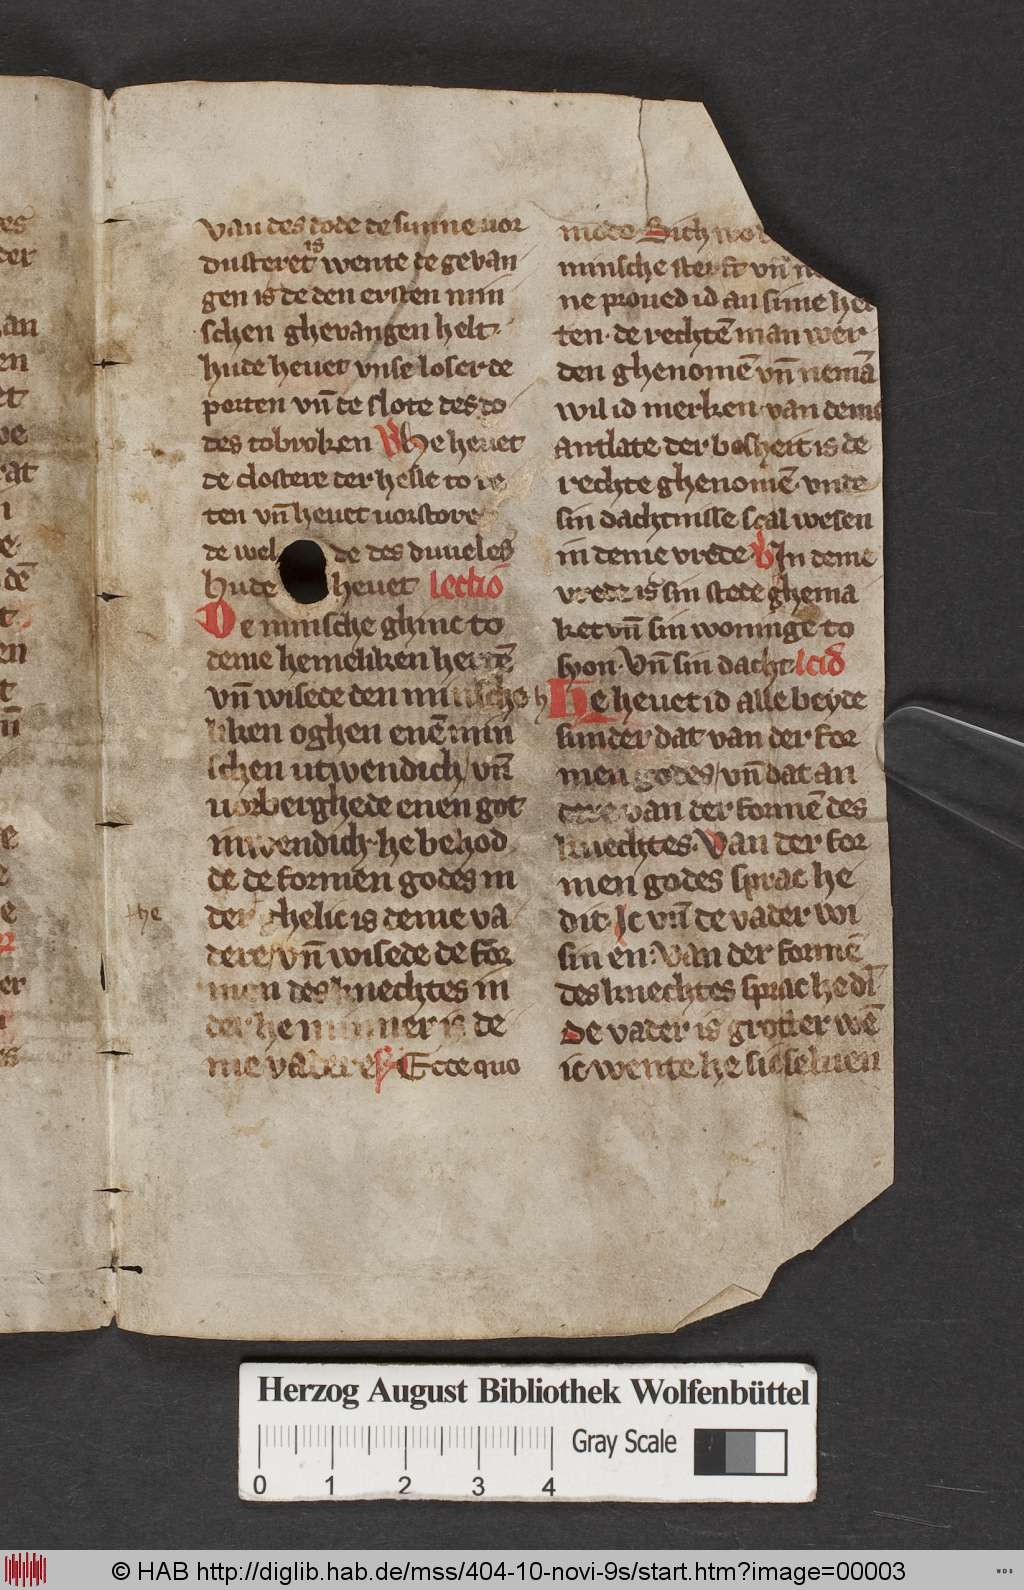 es
der
an
en
et
ve
rat
n
e
dē
t
en
t
n̄
e
e
e
er
is
van des dode de sunne uor
dusteret is wente de gevan
gen is de den ersten min
schen ghevangen helt·
hude hevet vnse loser de
porten vn̄ de slote des do
des tobroken V He hevet
de clostere der helle to re
ten vn̄ hevet uorstore
de wel de des duueles
hude hevet lectiō
De minsche ghinc to
deme hemeliken herdē
vn̄ wisede den minsche
liken oghen enē min
schen utwendich/ vn̄
uorberghede enen got
inwendich· he behod
de de formen godes in
der he ghelic is deme va
dere/ vn̄ wisede de for
men des knechtes in
der he minner is de
me vadere Ecce quo
modo Sich wo
minsche sterft vn̄
ne proved id an sime her
ten· de rechtē man wer
den ghenomē vn̄ nemā
wil id merken· van deme
antlate der bosheit is de
rechte ghenomē· vnde
sin dachtnisse scal wesen
in deme vrede V In deme
vrede is sin stede ghema
ket vn̄ sin woninge to
syon· Vn̄ sin dacht·
He hevet id alle beyde
sunder dat van der for
men godes/ vn̄ dat an
dere van der formē des
knechtes· Van der for
men godes sprac he
dit Ic vn̄ de vader wi
sin en: Van der formē
des knechtes sprac he
De vader is groter wē
ic wente he sic selven
he
Herzog August Bibliothek Wolfenbüttel
0 1 2 3 4
Gray Scale
© HAB http://diglib.hab.de/mss/404-10-novi-9s/start.htm?image=00003